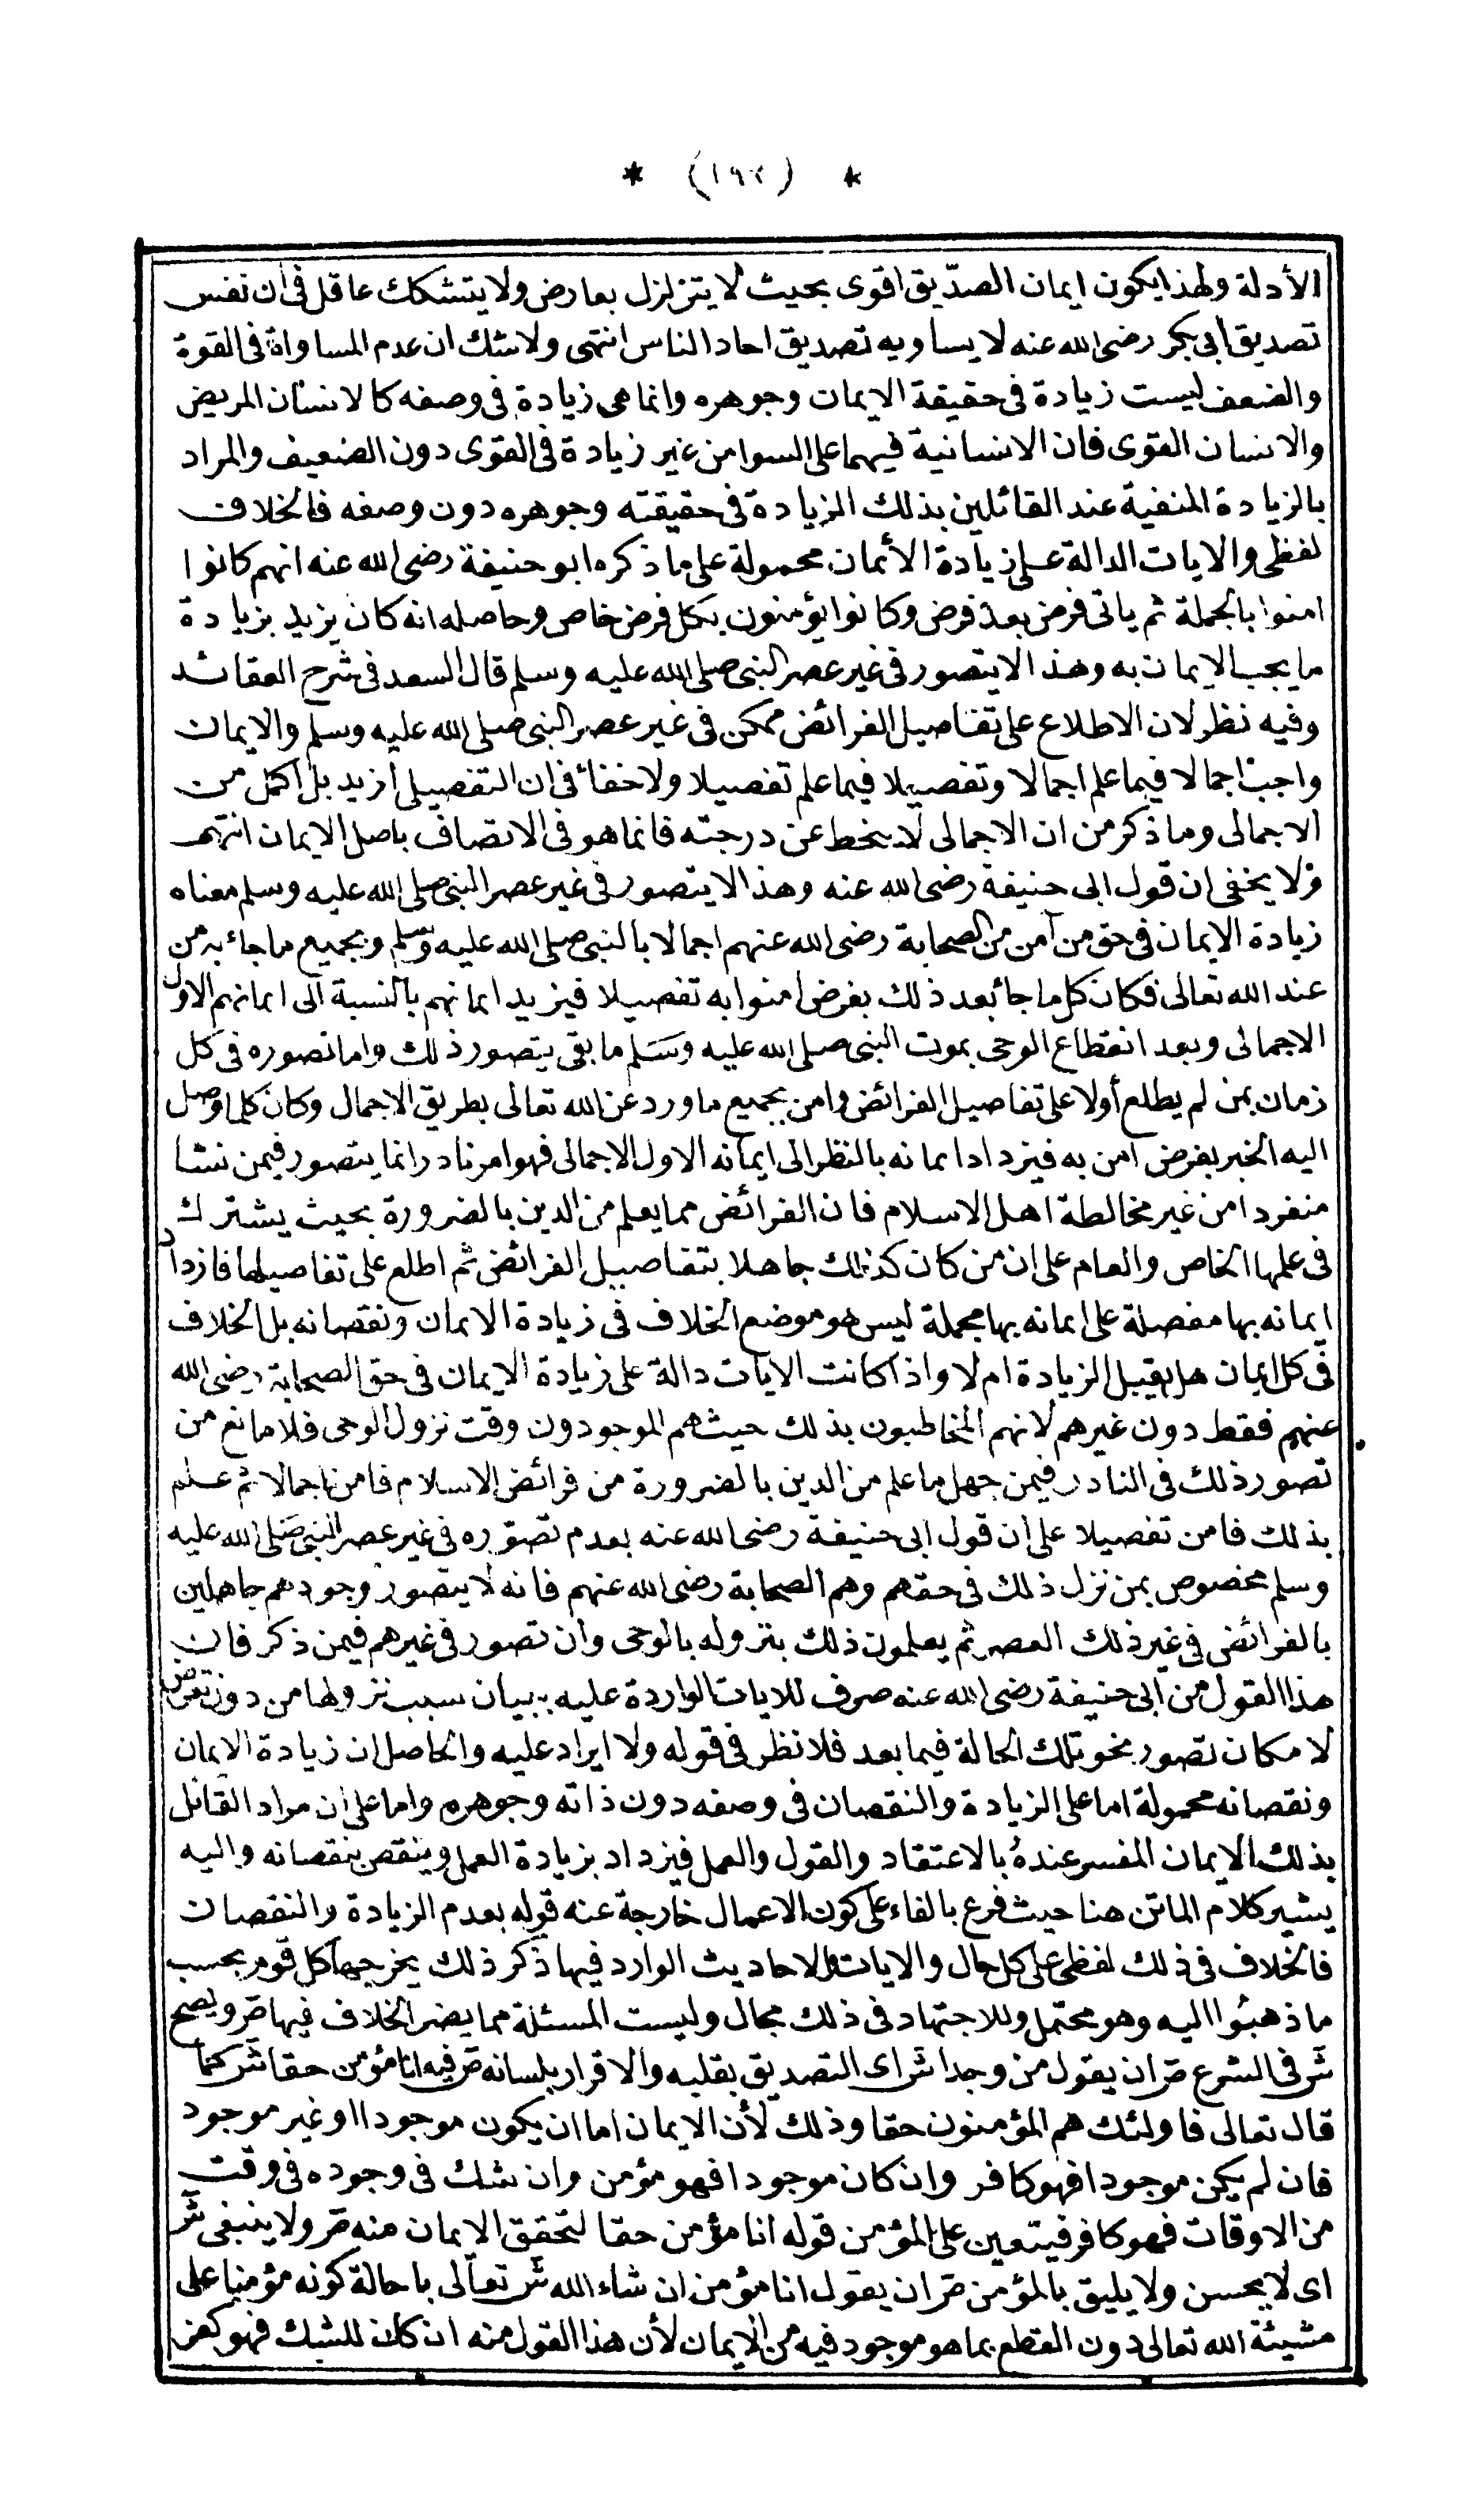 * (١٩٢) *
الأدلة ولهذا يكون ايمان الصدّيق اقوى بحيث لا يتزلزل بعارض ولا يتشكك عاقل فى أن نفس
تصديق ابى بكر رضى الله عنه لا يساويه تصديق احاد الناس انتهى ولا شك ان عدم المساواة فى القوة
والضعف ليست زيادة فى حقيقة الايمان وجوهره وانما هى زيادة فى وصفه كالانسان المريض
والانسان القوى فان الانسانية فيهما على السوا من غير زيادة فى القوى دون الضعيف والمراد
بالزيادة المنفية عند القائلين بذلك الزيادة فى حقيقته وجوهره دون وصفه فالخلاف
لفظى والايات الدالة على زيادة الأيمان محمولة على ما ذكره ابو حنيفة رضى الله عنه انهم كانوا
امنوا بالجملة ثم ياتى فرض بعد فرض وكانوا يؤمنون بكل فرض خاص وحاصله انه كان يزيد بزيادة
ما يجب الايمان به وهذا لايتصور فى غير عصر النبى صلى الله عليه وسلم قال السعد فى شرح العقائد
وفيه نظر لان الاطلاع على تفاصيل الفرائض ممكن فى غير عصر النبى صلى الله عليه وسلم والايمان
واجب اجمالا فيما علم اجمالا وتفصيلا فيما علم تفصيلا ولا خفاء فى ان التفصيلى أزيد بل اكمل من
الاجمالى وما ذكر من ان الاجمالى لا ينحط عن درجته فانما هو فى الاتصاف باصل الايمان انتهى
ولا يخفى ان قول ابى حنيفة رضى الله عنه وهذا لا يتصور فى غير عصر النبى صلى الله عليه وسلم معناه
زيادة الايمان فى حق من آمن من الصحابة رضى الله عنهم اجمالا بالنبى صلى الله عليه وسلم وبجميع ما جاء به من
عند الله تعالى فكان كل ما جاء بعد ذلك بفرض امنوا به تفصيلا فيزيد ايمانهم بالنسبة الى ايمانهم الاول
الاجمالى وبعد انقطاع الوحى بموت النبى صلى الله عليه وسلم ما بقى يتصور ذلك واما تصوره فى كل
زمان بمن لم يطلع أولا على تفاصيل الفرائض وامن بجميع ما ورد عن الله تعالى بطريق الاجمال وكان كلما وصل
اليه الخبر بفرض امن به فيزداد ايمانه بالنظر الى ايمانه الاول الاجمالى فهو امر نادر انما يتصور فيمن نشا
منفردا من غير مخالطة اهل الاسلام فان الفرائض مما يعلم من الدين بالضرورة بحيث يشترك
فى علمها الخاص والعام على ان من كان كذلك جاهلا بتفاصيل الفرائض ثم اطلع على تفاصيلها فازداد
ايمانه بها مفصلة على ايمانه بها مجملة ليس هو موضع الخلاف فى زيادة الايمان ونقصانه بل الخلاف
فى كل ايمان هل يقبل الزيادة ام لا واذا كانت الايات دالة على زيادة الايمان فى حق الصحابة رضى الله
عنهم فقط دون غيرهم لانهم المخاطبون بذلك حيث هم الموجودون وقت نزول الوحى فلا مانع من
تصور ذلك فى النادر فيمن جهل ما علم من الدين بالضرورة من فرائض الاسلام فامن اجمالا ثم علم
بذلك فامن تفصيلا على ان قول ابى حنيفة رضى الله عنه بعدم تصوره فى غير عصر النبى صلى الله عليه
وسلم مخصوص بمن نزل ذلك فى حقهم وهم الصحابة رضى الله عنهم فانه لا يتصور وجودهم جاهلين
بالفرائض فى غير ذلك العصر ثم يعلمون ذلك بنزوله بالوحى وان تصور فى غيرهم فيمن ذكر فان
هذا القول من ابى حنيفة رضى الله عنه صرف للايات الواردة عليه ببيان سبب نزولها من دون تعرض
لامكان تصور نحو تلك الحالة فيما بعد فلا نظر فى قوله ولا ايراد عليه والحاصل ان زيادة الايمان
ونقصانه محمولة اما على الزيادة والنقصان فى وصفه دون ذاته وجوهره واما على ان مراد القائل
بذلك الايمان المفسر عنده بالاعتقاد والقول والعمل فيزداد بزيادة العمل وينقص بنقصانه واليه
يشير كلام الماتن هنا حيث فرع بالفاء على كون الاعمال خارجة عنه قوله بعدم الزيادة والنقصان
فالخلاف فى ذلك لفظى على كل حال والايات والاحاديث الوارد فيها ذكر ذلك يخرجها كل قوم بحسب
ما ذهبوا اليه وهو محتمل وللاجتهاد فى ذلك مجال وليست المسئلة مما يضر الخلاف فيها صَ ويصح
شَ فى الشرع صَ ان يقول من وجد شَ اى التصديق بقلبه والاقرار بلسانه صَ فيه انا مؤمن حقا شَ كما
قال تعالى فاولئك هم المؤمنون حقا وذلك لأن الايمان اما ان يكون موجودا او غير موجود
فان لم يكن موجودا فهو كافر وان كان موجودا فهو مؤمن وان شك فى وجوده فى وقت
من الاوقات فهو كافر فيتعين على المؤمن قوله انا مؤمن حقا لتحقق الايمان منه صَ ولا ينبغى شَ
اى لا يحسن ولا يليق بالمؤمن صَ ان يقول انا مؤمن ان شاء الله شَ تعالى باحالة كونه مؤمنا على
مشيئة الله تعالى دون القطع بما هو موجود فيه من الايمان لأن هذا القول منه ان كان للشك فهو كفر